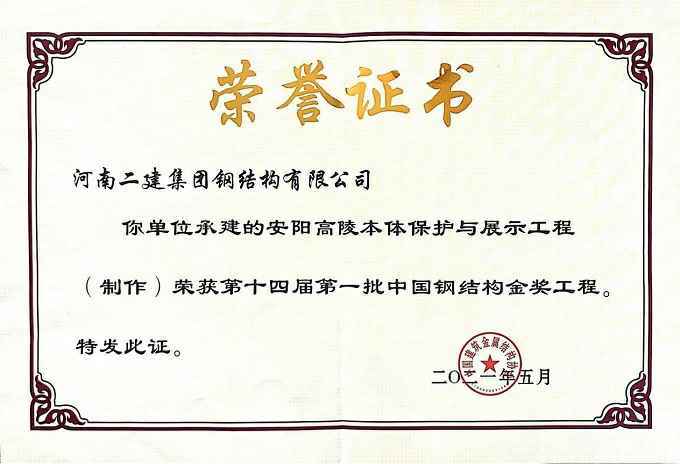 荣誉证书
河南二建集团钢结构有限公司
你单位承建的安阳高陵本体保护与展示工程
（制作）荣获第十四届第一批中国钢结构金奖工程。
特发此证。
中国建筑金属结构协
二〇二一年五月